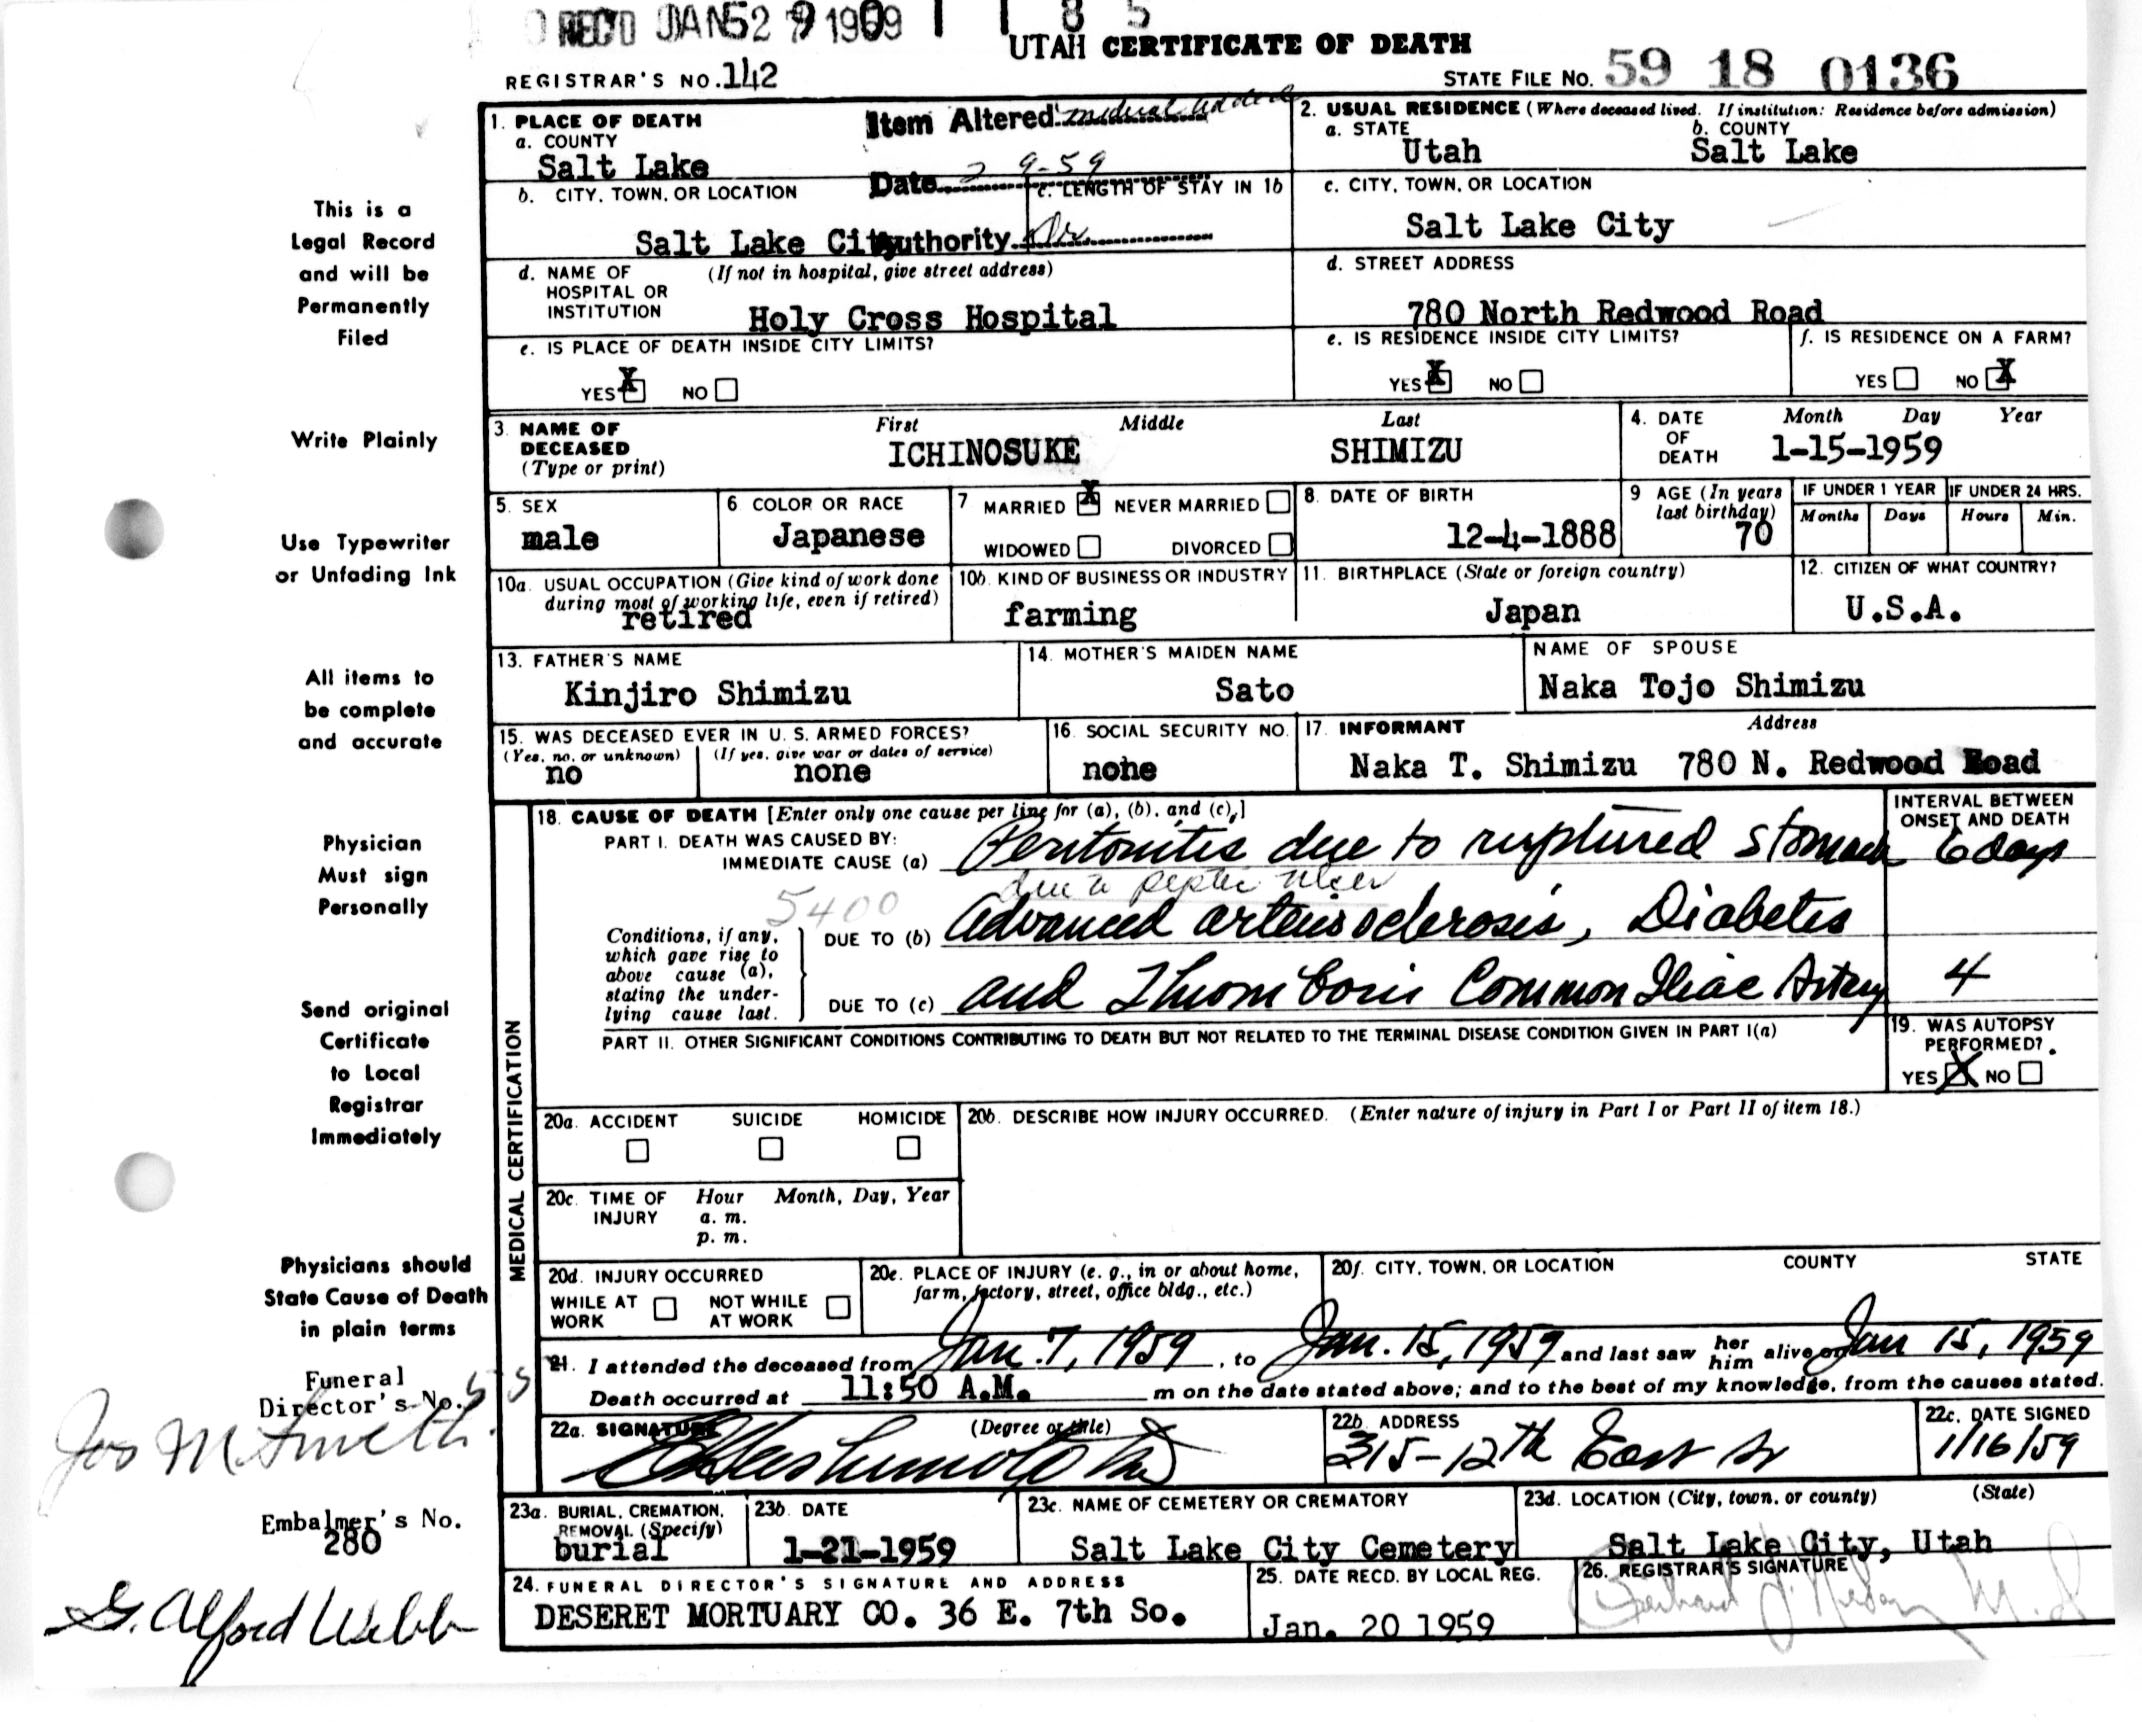 REC'D JAN 29 1959
UTAH CERTIFICATE OF DEATH
REGISTRAR'S NO. 142
STATE FILE NO. 59 18 0136
1. PLACE OF DEATH
a. COUNTY
Salt Lake
Item Altered: medical added
Date 2 9-59
Authority Dr.
2. USUAL RESIDENCE (Where deceased lived. If institution: Residence before admission)
a. STATE
Utah
b. COUNTY
Salt Lake
b. CITY, TOWN, OR LOCATION
Salt Lake City
c. LENGTH OF STAY IN 1b
c. CITY, TOWN, OR LOCATION
Salt Lake City
d. NAME OF HOSPITAL OR INSTITUTION
(If not in hospital, give street address)
Holy Cross Hospital
d. STREET ADDRESS
780 North Redwood Road
e. IS PLACE OF DEATH INSIDE CITY LIMITS?
YES X NO
e. IS RESIDENCE INSIDE CITY LIMITS?
YES X NO
f. IS RESIDENCE ON A FARM?
YES NO X
3. NAME OF DECEASED (Type or print)
First Middle Last
ICHINOSUKE SHIMIZU
4. DATE OF DEATH
Month Day Year
1-15-1959
5. SEX
male
6 COLOR OR RACE
Japanese
7 MARRIED X NEVER MARRIED
WIDOWED DIVORCED
8. DATE OF BIRTH
12-4-1888
9 AGE (In years last birthday)
70
IF UNDER 1 YEAR
Months Days
IF UNDER 24 HRS.
Hours Min.
10a. USUAL OCCUPATION (Give kind of work done during most of working life, even if retired)
retired
10b. KIND OF BUSINESS OR INDUSTRY
farming
11. BIRTHPLACE (State or foreign country)
Japan
12. CITIZEN OF WHAT COUNTRY?
U.S.A.
13. FATHER'S NAME
Kinjiro Shimizu
14. MOTHER'S MAIDEN NAME
Sato
NAME OF SPOUSE
Naka Tojo Shimizu
15. WAS DECEASED EVER IN U. S. ARMED FORCES?
(Yes, no, or unknown)
no
(If yes, give war or dates of service)
none
16. SOCIAL SECURITY NO.
none
17. INFORMANT Address
Naka T. Shimizu 780 N. Redwood Road
MEDICAL CERTIFICATION
18. CAUSE OF DEATH [Enter only one cause per line for (a), (b), and (c).]
INTERVAL BETWEEN ONSET AND DEATH
PART I. DEATH WAS CAUSED BY:
IMMEDIATE CAUSE (a) Peritonitis due to ruptured stomach 6 days
due to peptic ulcer
5400
Conditions, if any, which gave rise to above cause (a), stating the underlying cause last.
DUE TO (b) Advanced arteriosclerosis, Diabetes
DUE TO (c) and Thrombosis Common Iliac Artery 4
PART II. OTHER SIGNIFICANT CONDITIONS CONTRIBUTING TO DEATH BUT NOT RELATED TO THE TERMINAL DISEASE CONDITION GIVEN IN PART I(a)
19. WAS AUTOPSY PERFORMED?
YES X NO
20a. ACCIDENT SUICIDE HOMICIDE
20b. DESCRIBE HOW INJURY OCCURRED. (Enter nature of injury in Part I or Part II of item 18.)
20c. TIME OF INJURY
Hour Month, Day, Year
a. m.
p. m.
20d. INJURY OCCURRED
WHILE AT WORK NOT WHILE AT WORK
20e. PLACE OF INJURY (e. g., in or about home, farm, factory, street, office bldg., etc.)
20f. CITY, TOWN, OR LOCATION COUNTY STATE
21. I attended the deceased from Jan. 7, 1959, to Jan. 15, 1959 and last saw her him alive on Jan 15, 1959
Death occurred at 11:50 A.M. m on the date stated above; and to the best of my knowledge, from the causes stated.
22a. SIGNATURE (Degree or title)
22b. ADDRESS
315-12th East St
22c. DATE SIGNED
1/16/59
23a. BURIAL, CREMATION, REMOVAL (Specify)
burial
23b. DATE
1-21-1959
23c. NAME OF CEMETERY OR CREMATORY
Salt Lake City Cemetery
23d. LOCATION (City, town, or county) (State)
Salt Lake City, Utah
24. FUNERAL DIRECTOR'S SIGNATURE AND ADDRESS
DESERET MORTUARY CO. 36 E. 7th So.
25. DATE RECD. BY LOCAL REG.
Jan. 20 1959
26. REGISTRAR'S SIGNATURE
This is a
Legal Record
and will be
Permanently
Filed
Write Plainly
Use Typewriter
or Unfading Ink
All items to
be complete
and accurate
Physician
Must sign
Personally
Send original
Certificate
to Local
Registrar
Immediately
Physicians should
State Cause of Death
in plain terms
Funeral
Director's No.
Jos M. Smith
Embalmer's No.
280
G. Alford Webb